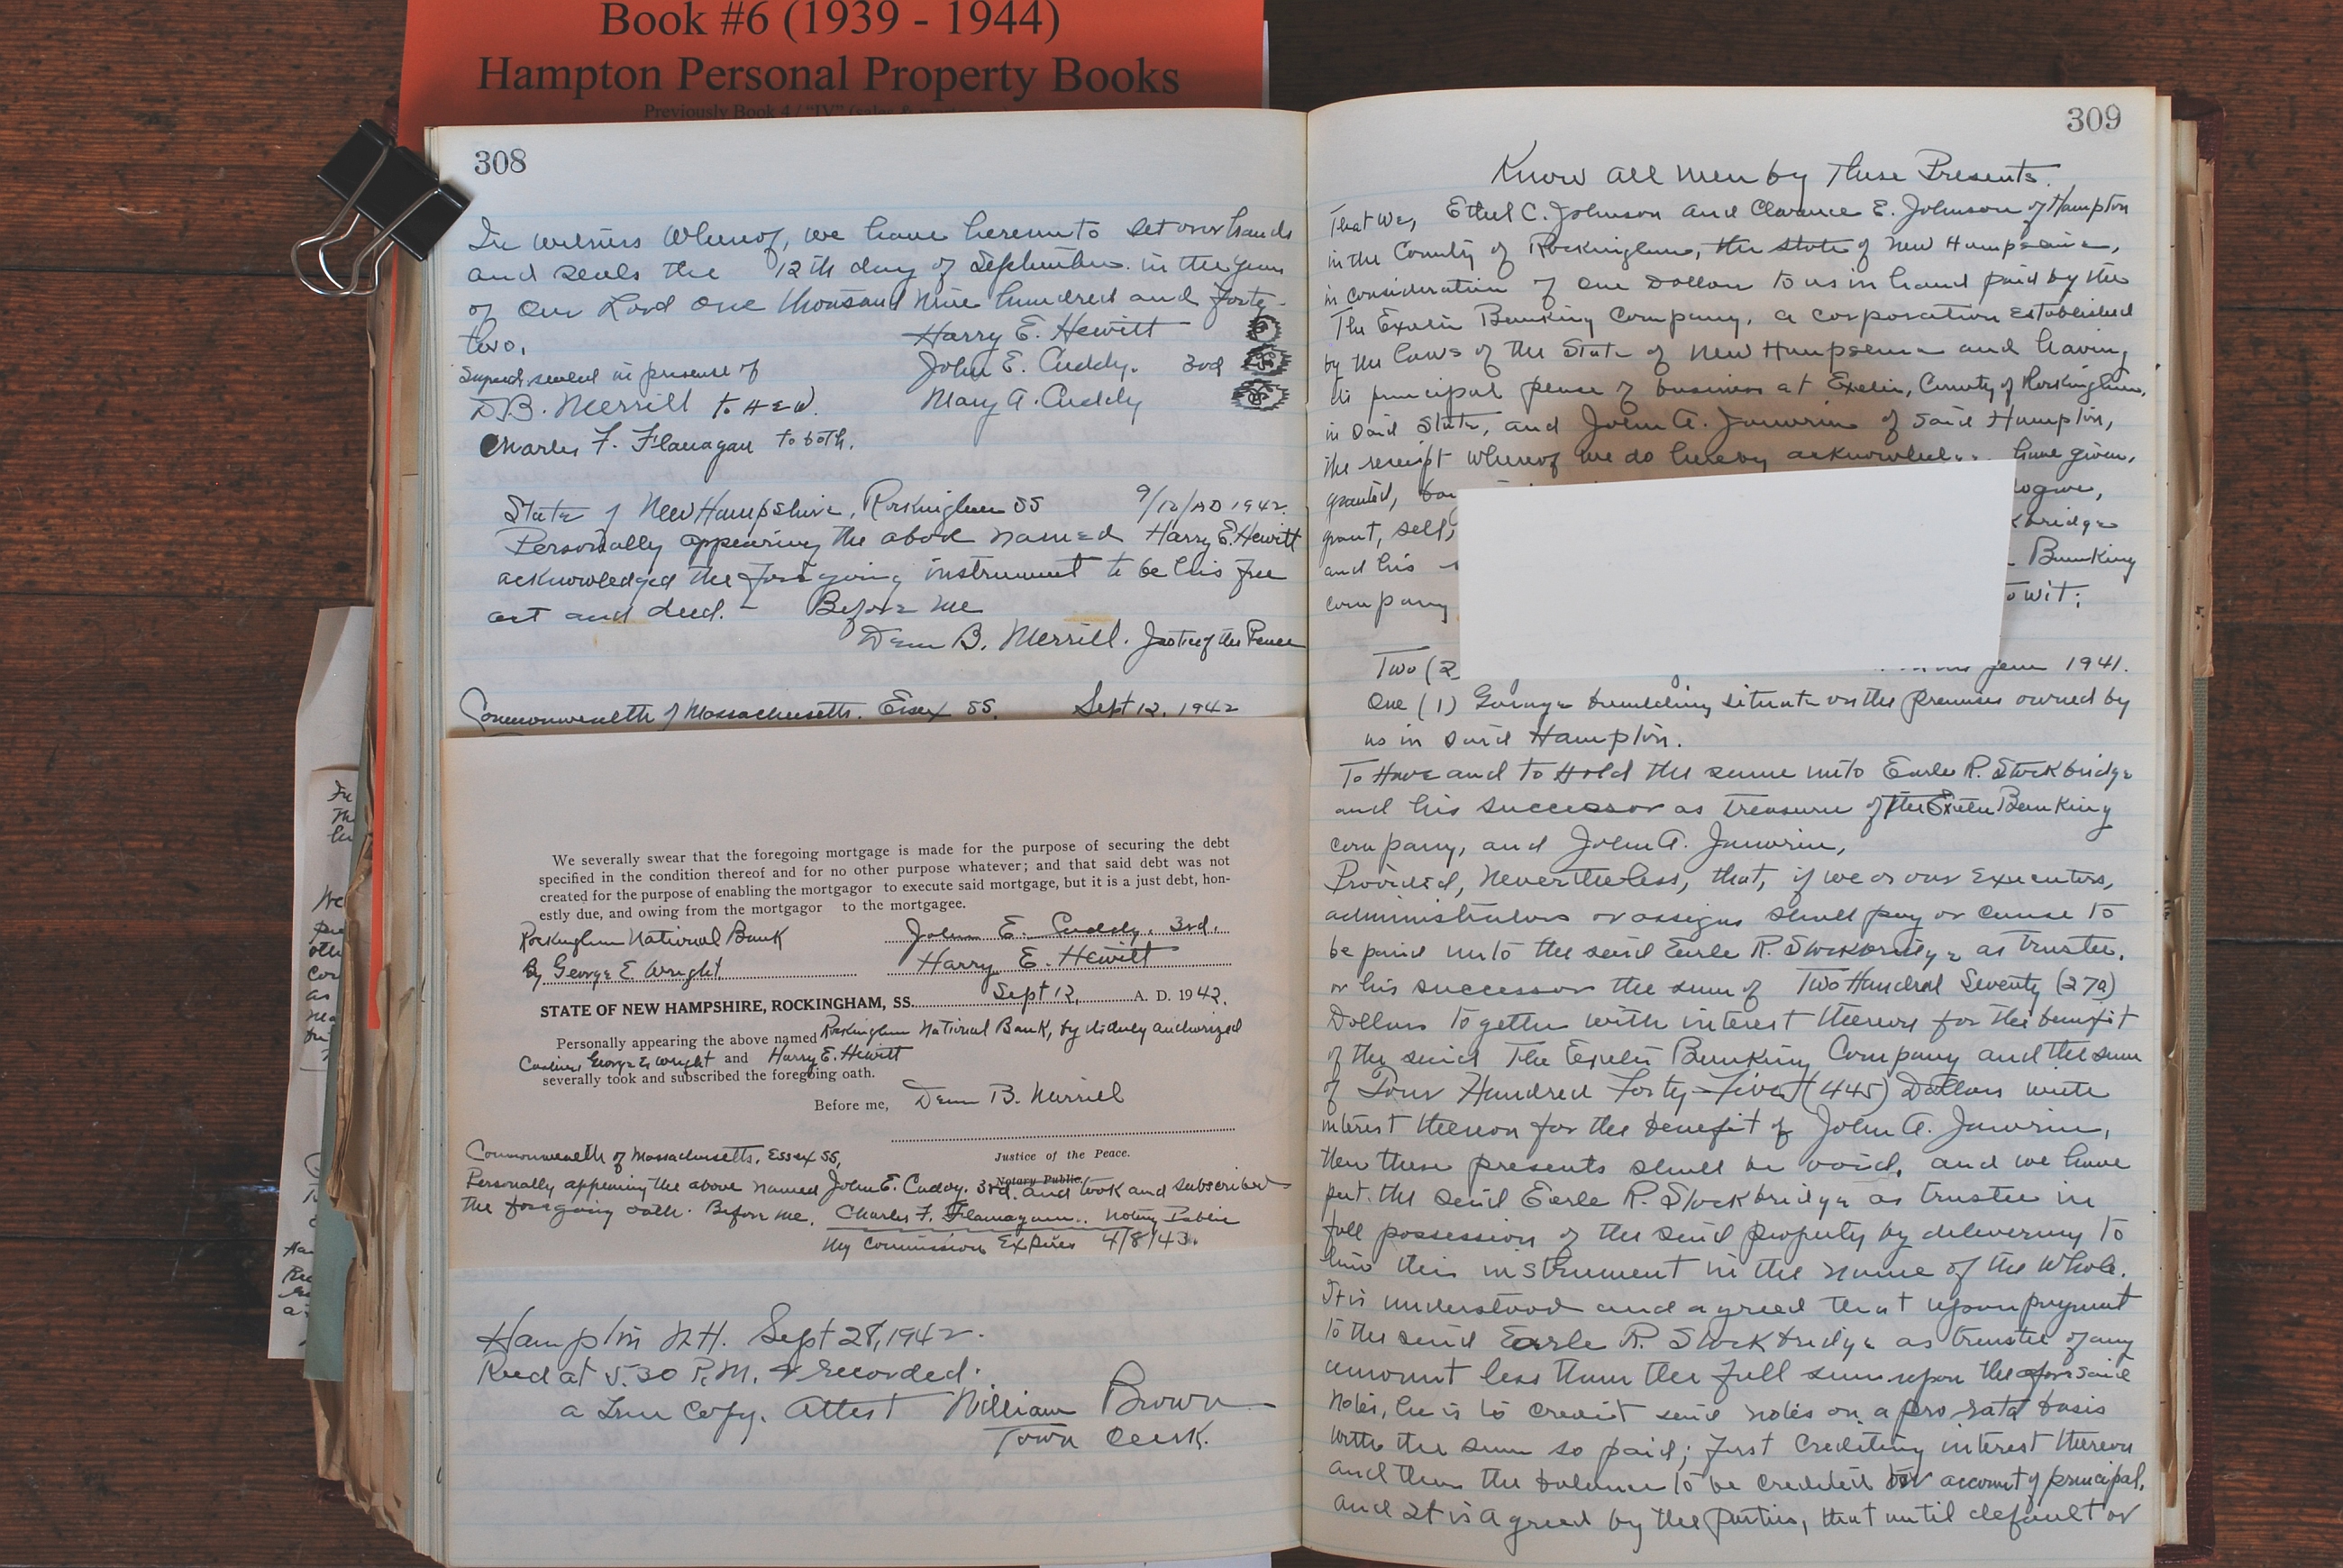 Book #6 (1939 - 1944)
Hampton Personal Property Books
Previously Book 4 / "IV"
308
In witness whereof, we have hereunto set our hands
and seals the 12th day of September in the year
of Our Lord One thousand nine hundred and forty-
two.
Harry E. Hewitt
John E. Cuddy. 3rd
Mary A. Cuddy
sealed in presence of
D B. Merrill to H E W.
Charles F. Flanagan to both.
State of New Hampshire, Rockingham SS 9/12/AD 1942.
Personally appearing the above named Harry E. Hewitt
acknowledged the foregoing instrument to be his free
act and deed. - Before me
Dean B. Merrill. Justice of the Peace
Commonwealth of Massachusetts. Essex SS. Sept 12, 1942
We severally swear that the foregoing mortgage is made for the purpose of securing the debt
specified in the condition thereof and for no other purpose whatever; and that said debt was not
created for the purpose of enabling the mortgagor to execute said mortgage, but it is a just debt, hon-
estly due, and owing from the mortgagor to the mortgagee.
Rockingham National Bank John E. Cuddy, 3rd.
By George E. Wright Harry E. Hewitt
STATE OF NEW HAMPSHIRE, ROCKINGHAM, SS. Sept 12, A. D. 1942.
Personally appearing the above named Rockingham National Bank, by authorized
Cashier George E Wright and Harry E. Hewitt
severally took and subscribed the foregoing oath.
Before me, Dean B. Merrill
Justice of the Peace.
Notary Public.
Commonwealth of Massachusetts, Essex SS,
Personally appearing the above named John E. Cuddy. 3rd. and took and subscribed
the foregoing oath. Before me. Charles F. Flanagan.. Notary Public
My Commission Expires 4/8/43.
Hampton N.H. Sept 28, 1942.
Recd at 5.30 P.M. & recorded.
a True Copy. Attest William Brown
Town Clerk.
309
Know all men by These Presents.
That We, Ethel C. Johnson and Clarence E. Johnson of Hampton
in the County of Rockingham, the state of New Hampshire,
in consideration of One Dollar to us in hand paid by the
The Exeter Banking Company, a corporation established
by the laws of the State of New Hampshire and having
its principal place of business at Exeter, County of Rockingham,
in said State, and John A. Janvrin of said Hampton,
the receipt whereof we do hereby have given,
granted,
grant, sell,
and his Banking
company to wit:
Two (2 year 1941.
One (1) Garage building situate on the premises owned by
us in said Hampton.
To Have and to Hold the same unto Earle R. Stockbridge
and his successor as treasurer of the Exeter Banking
company, and John A. Janvrin,
Provided, Nevertheless, that, if we or our Executors,
administrators or assigns shall pay or cause to
be paid unto the said Earle R. Stockbridge as trustee,
or his successor the sum of Two Hundred Seventy (270)
Dollars together with interest thereon for the benefit
of the said The Exeter Banking Company and the sum
of Four Hundred Forty-five (445) Dollars with
interest thereon for the benefit of John A. Janvrin,
then these presents shall be void. and we have
put the said Earle R. Stockbridge as trustee in
full possession of the said property by delivering to
him this instrument in the name of the whole.
It is understood and agreed that upon payment
to the said Earle R. Stockbridge as trustee of any
amount less than the full sum upon the aforesaid
Notes, he is to credit said notes on a pro rata basis
with the sum so paid; first crediting interest thereon
and then the balance to be credited on account of principal.
And it is agreed by the parties, that until default or